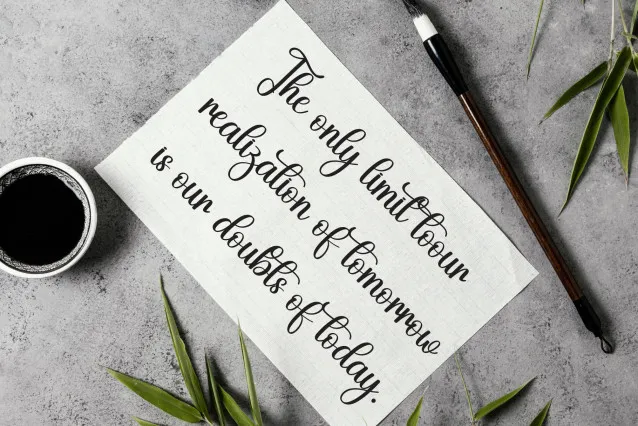 The only limit toour
realization of tomorrow
is our doubts of today.